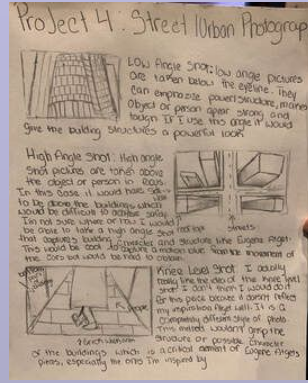 Project 4: Street/Urban Photograp
Low Angle Shot: low angle pictures
are taken below the eyeline. They
can emphasize power/structure, makes
object or person appear strong and
tough If I use this angle it would
give the building structures a powerful look.
High Angle Shot: High angle
shot pictures are taken above
the object or person in focus.
In this case it would have
to be above the buildings which
would be difficult to achieve
I'm not sure where or how I would
be able to take a high angle shot
that captures building character and structure like Eugene Atget.
This would be cool to capture a motion blur from the movement of
the cars but would be hard to obtain.
rooftops
streets
Knee Level Shot: I actually
really like the idea of the knee level
shot
for this piece because it doesn't reflect
my inspiration Atget well. It is a
completely different style of photo.
This method wouldn't grasp the
structure or possible character
of the buildings which is a critical element of Eugene Atgets
pieces, especially the ones I'm inspired by
people